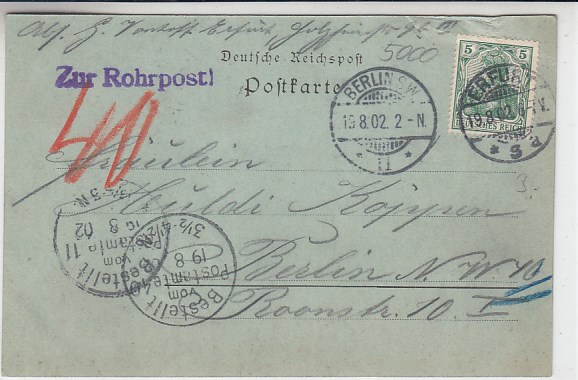 Abs. H. Erfurt
5000
Deutsche Reichspost
Zur Rohrpost!
Postkarte
BERLIN S.W.
19.8.02. 2-N.
* 11 *
5 5
DEUTSCHES REICH
ERFURT
19.8.02. 6-
* 5 d
40
Fräulein
Huldi Köppen
Berlin N.W. 40
Roonstr. 10. I
Bestellt
vom
Postamte 11
19 8 02
Bestellt
vom
Postamte 40
19 8
3½-4½N